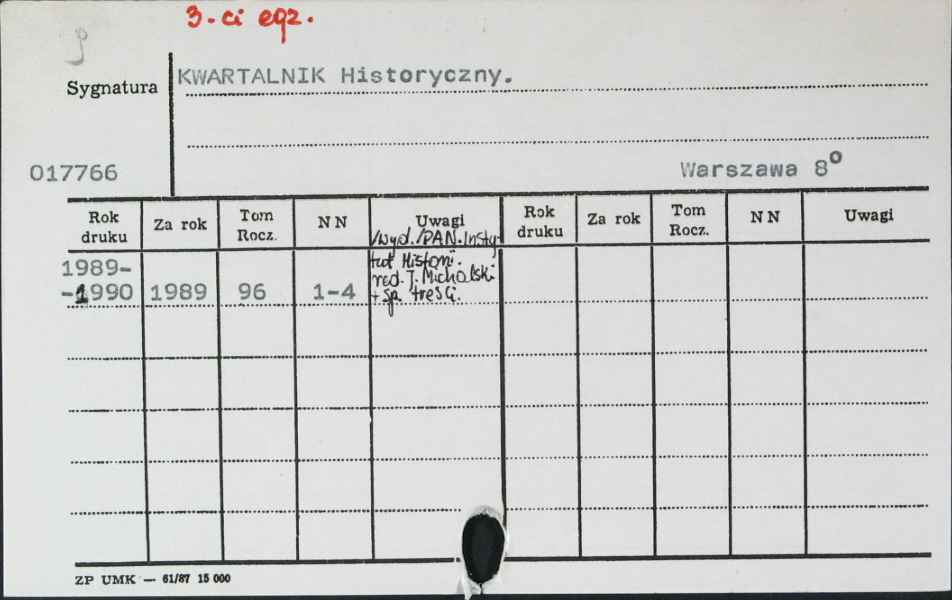 3-ci egz.
Sygnatura
KWARTALNIK Historyczny.
017766
Warszawa 8º
Rok druku Za rok Tom Rocz. NN Uwagi Rok druku Za rok Tom Rocz. NN Uwagi
/wyd./PAN. Insty-
tut Historii.
red. J. Michalski
+ sp. treści.
1989-
-1990 1989 96 1-4
ZP UMK — 61/87 15 000